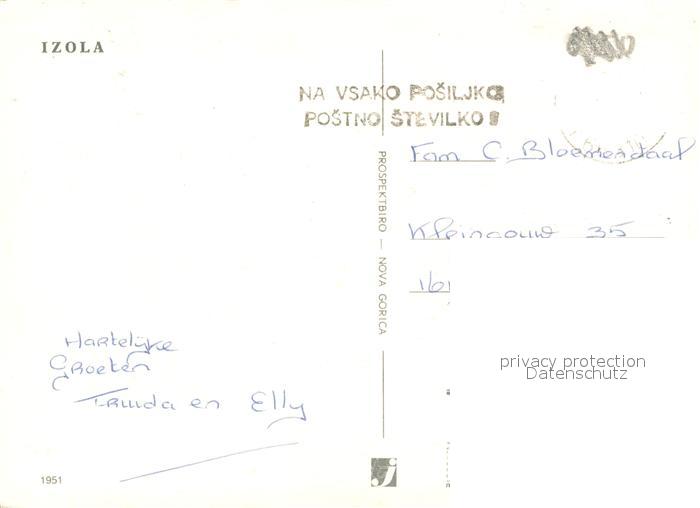 IZOLA
NA VSAKO POŠILJKO
POŠTNO ŠTEVILKO!
Fam C. Bloemendaal
Kleingouw 35
161
PROSPEKTBIRO — NOVA GORICA
Hartelijke
Groeten
Truda en Elly
privacy protection
Datenschutz
1951